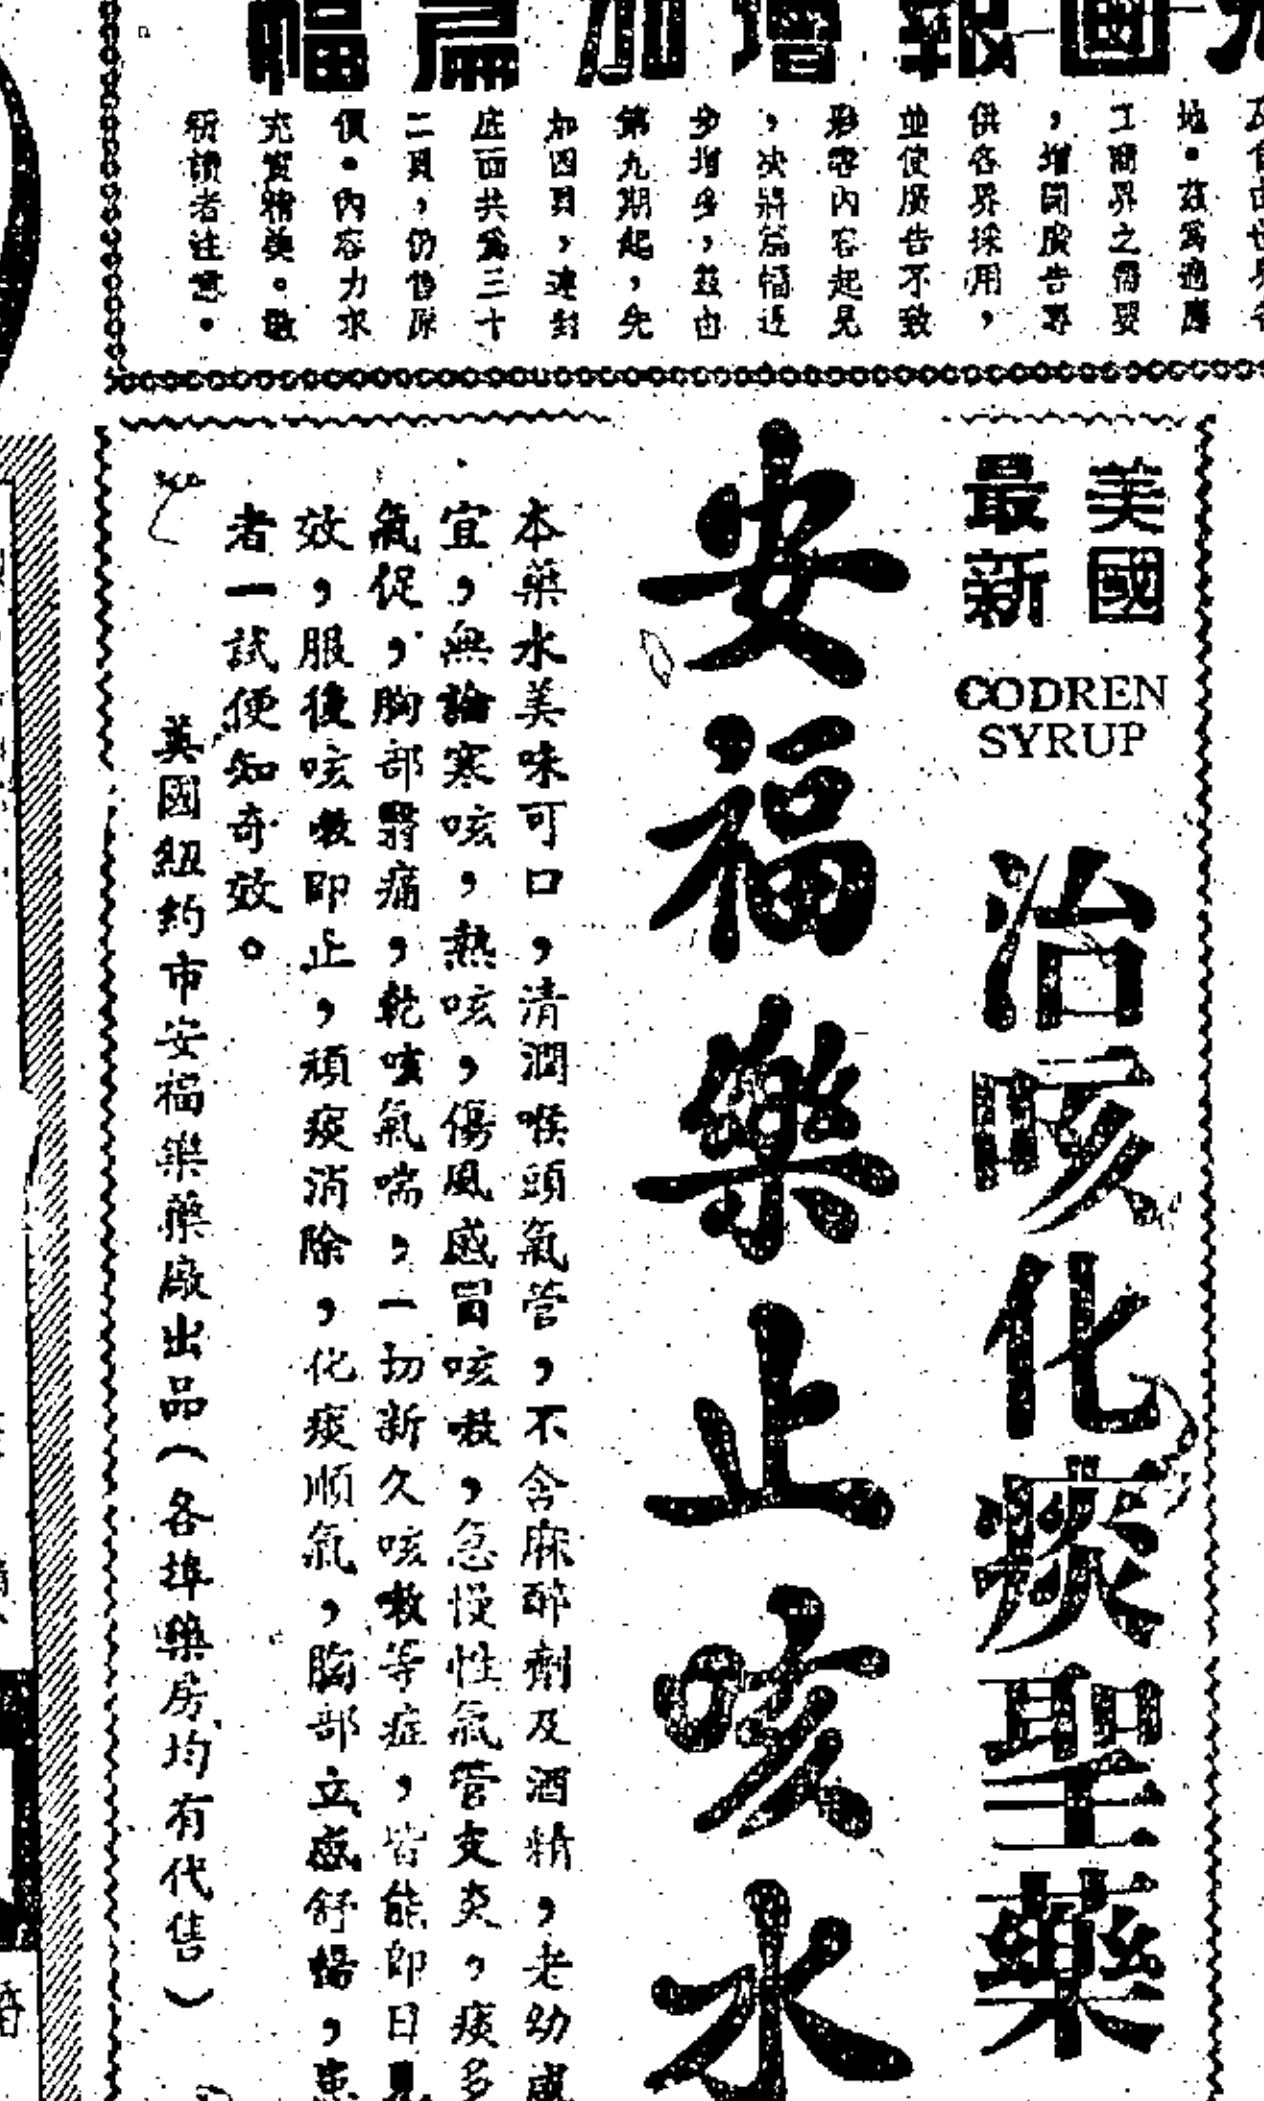 國報增加篇幅
地。茲為適應
工商界之需要
，增闢廣告專
供各界採用，
並使廣告不致
影響內容起見
，决將篇幅逐
步增多，茲由
第九期起，先
加四頁，連封
底面共為三十
二頁，仍售原
價。內容力求
充實精美。敬
祈讀者注意。
美國
最新
CODREN
SYRUP
治咳化痰聖藥
安福樂止咳水
本藥水美味可口，清潤喉頭氣管，不含麻醉劑及酒精，老幼咸
宜，無論寒咳，熱咳，傷風感冒咳嗽，急慢性氣管支炎，痰多
氣促，胸部翳痛，乾咳氣喘，一切新久咳嗽等症，皆能即日見
效，服後咳嗽即止，頑痰消除，化痰順氣，胸部立感舒暢，患
者一試便知奇效。
美國紐約市安福樂藥廠出品（各埠藥房均有代售）